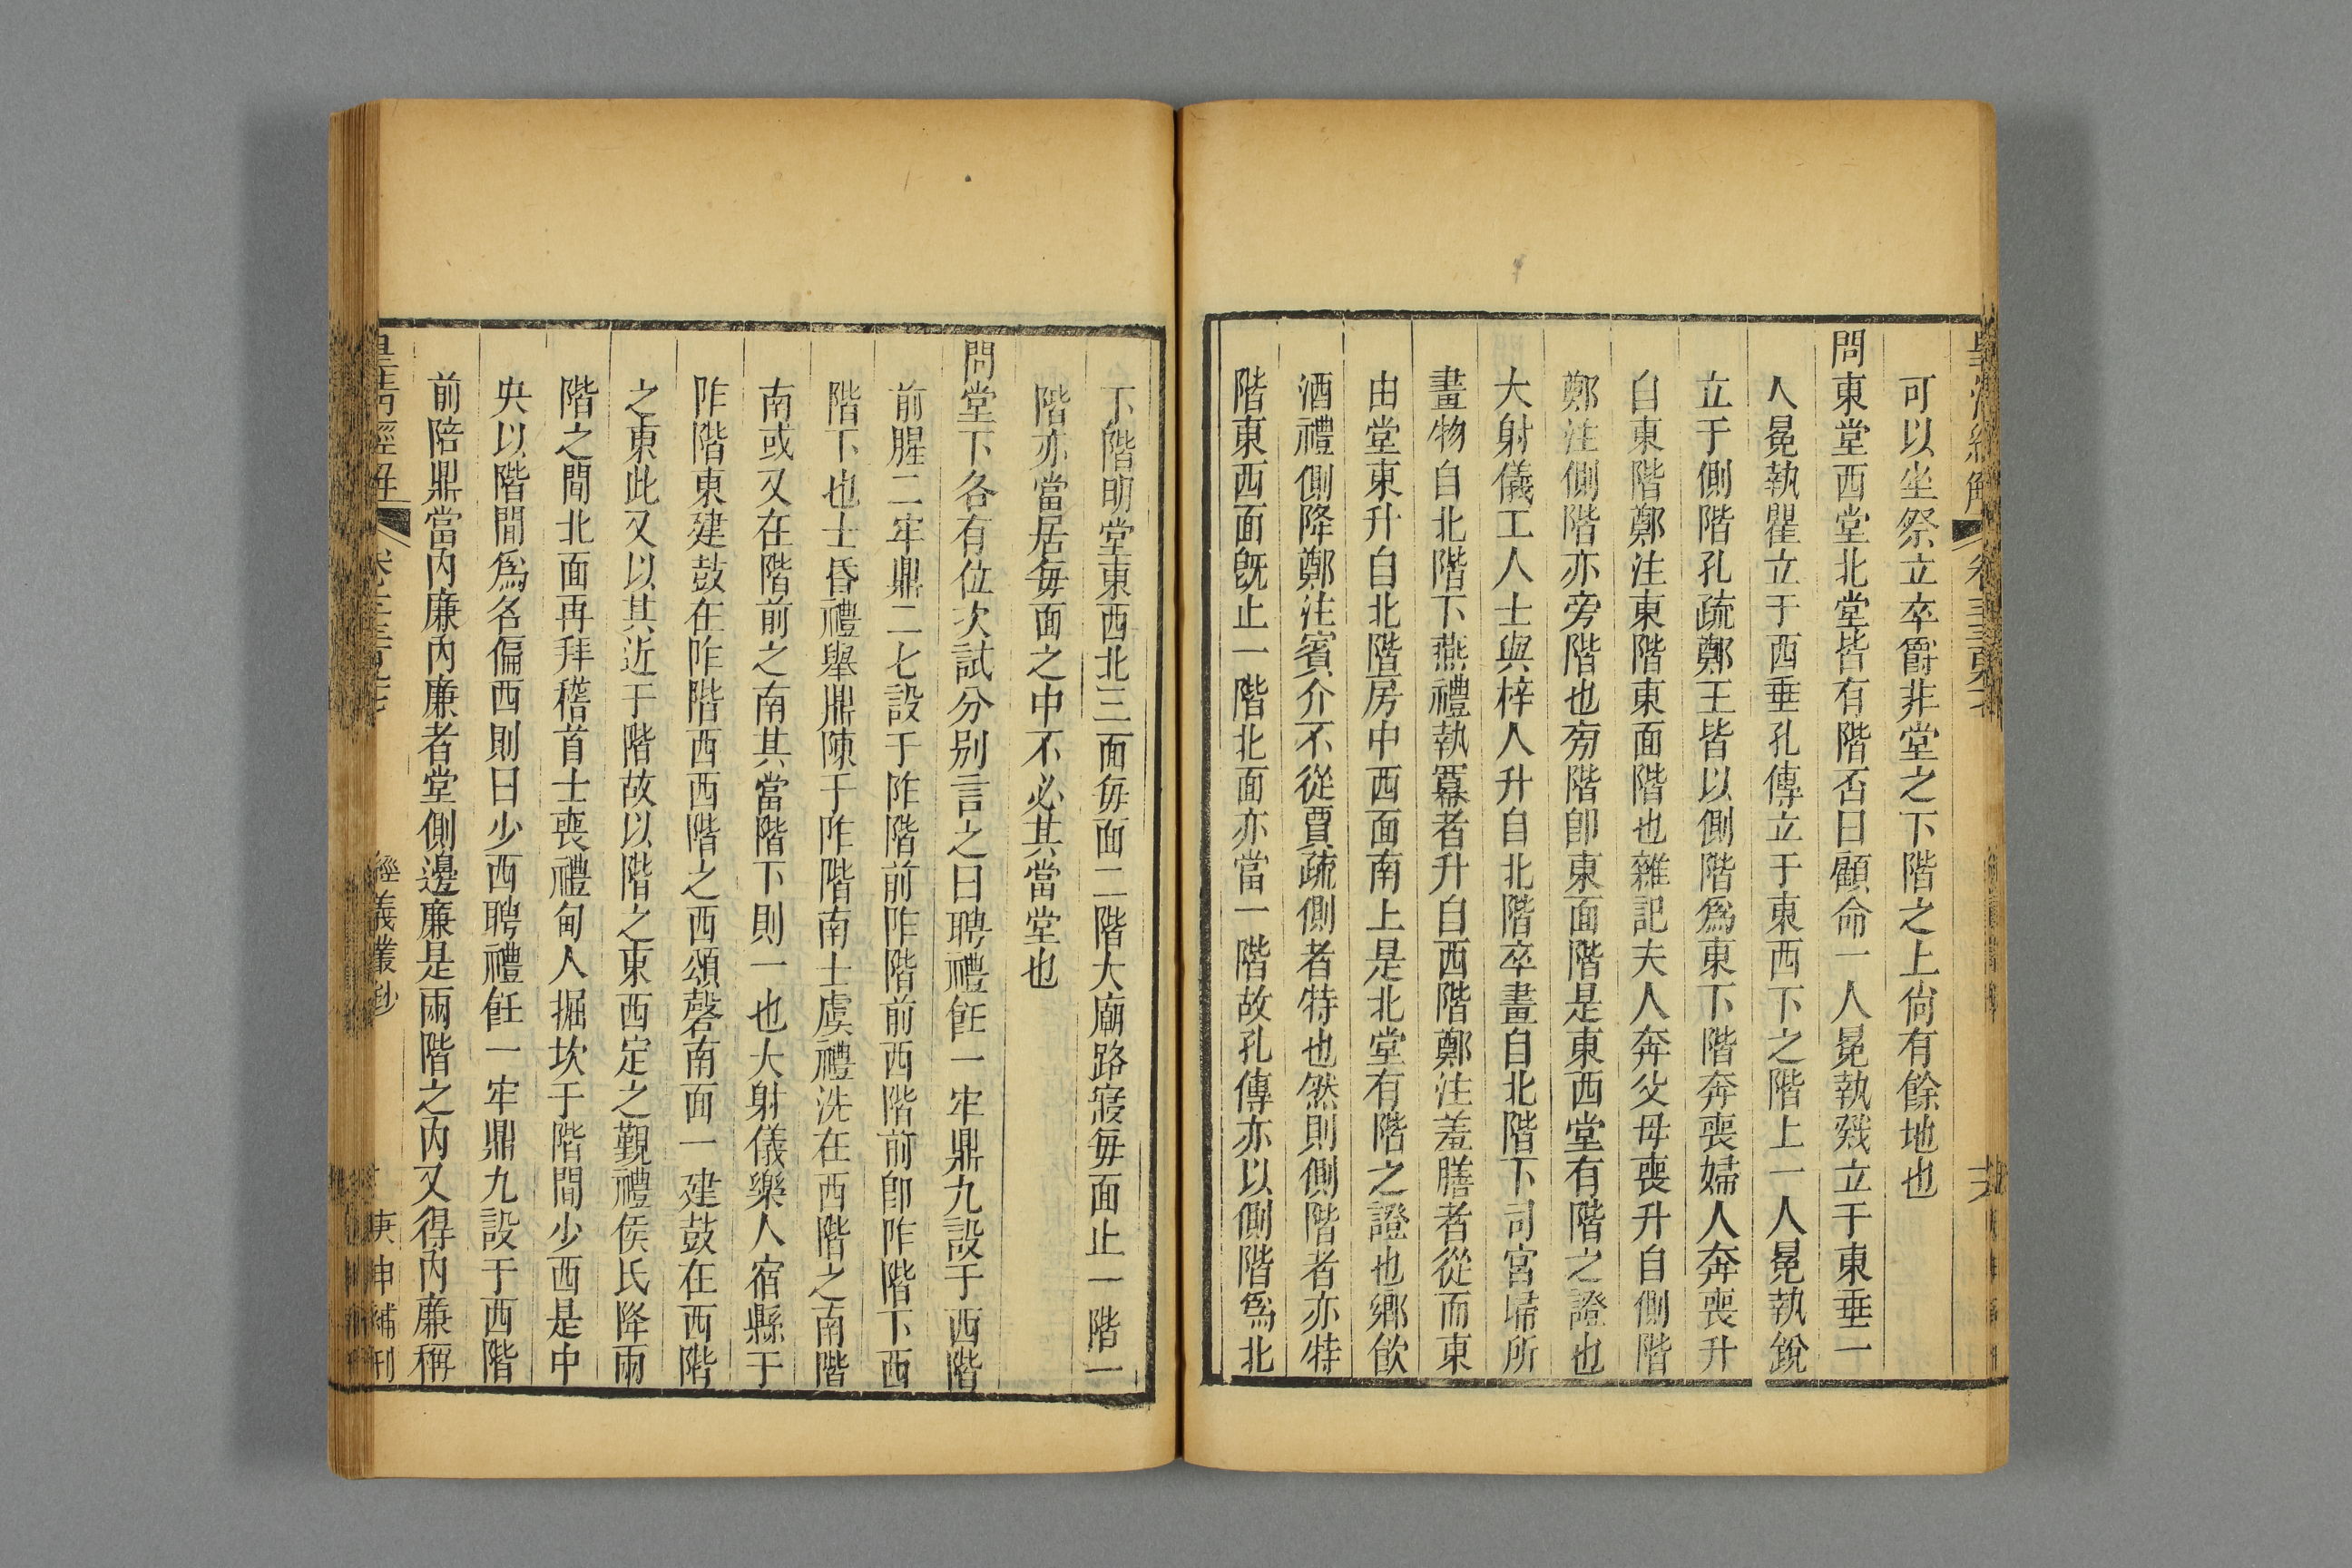 皇清經解
可以坐祭立卒爵非堂之下階之上尙有餘地也
問東堂西堂北堂皆有階否曰顧命一人冕執戣立于東垂一
人冕執瞿立于西垂孔傳立于東西下之階上一人冕執銳
立于側階孔疏鄭王皆以側階爲東下階奔喪婦人奔喪升
自東階鄭注東階東面階也雜記夫人奔父母喪升自側階
鄭注側階亦旁階也旁階卽東面階是東西堂有階之證也
大射儀工人士與梓人升自北階卒畫自北階下司宮埽所
畫物自北階下燕禮執冪者升自西階鄭注羞膳者從而東
由堂東升自北階房中西面南上是北堂有階之證也鄉飲
酒禮側降鄭注賓介不從賈疏側者特也然則側階者亦特
階東西面旣止一階北面亦當一階故孔傳亦以側階爲北
下階明堂東西北三面每面二階大廟路寢每面止一階一
階亦當居每面之中不必其當堂也
問堂下各有位次試分别言之曰聘禮飪一牢鼎九設于西階
前腥二牢鼎二七設于阼階前阼階前西階前卽阼階下西
階下也士昏禮舉鼎陳于阼階南士虞禮洗在西階之南階
南或又在階前之南其當階下則一也大射儀樂人宿縣于
阼階東建鼓在阼階西西階之西頌磬南面一建鼓在西階
之東此又以其近于階故以階之東西定之覲禮侯氏降兩
階之間北面再拜稽首士喪禮甸人掘坎于階間少西是中
央以階間爲名偏西則曰少西聘禮飪一牢鼎九設于西階
前陪鼎當內廉內廉者堂側邊廉是兩階之內又得內廉稱
皇清經解
經義叢鈔
庚申補刊